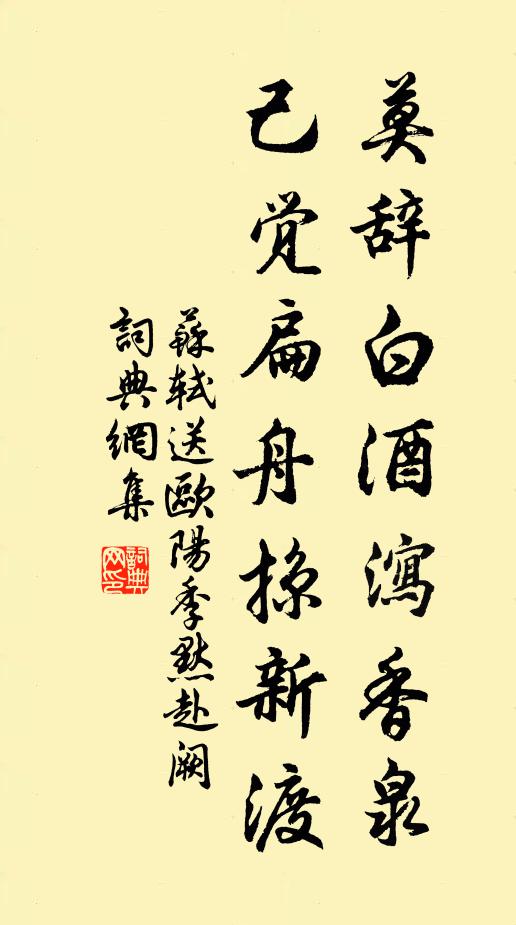 莫辞白酒瀉香泉
己觉扁舟掠新渡
蘇軾送歐陽季默赴阙
詞典網集
詞典网印